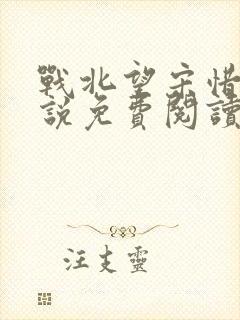 戰北望宋惜
說免費閱讀
汪支靈